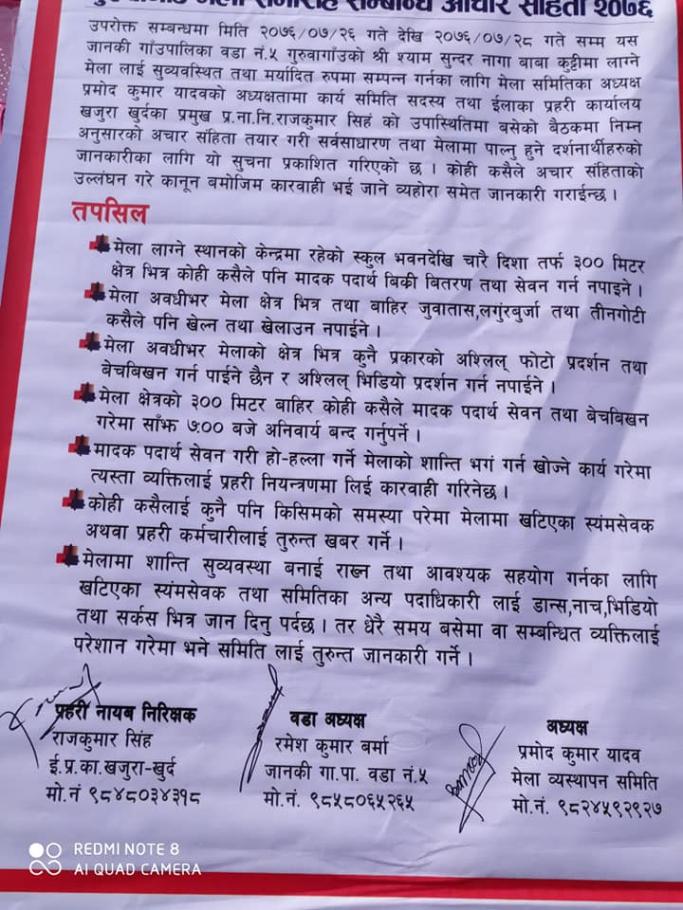 मेला समारोह सम्बन्धि आचार संहिता २०७६
उपरोक्त सम्बन्धमा मिति २०७६/०७/२६ गते देखि २०७६/०७/२८ गते सम्म यस
जानकी गाँउपालिका वडा नं.५ गुरुवागाँउको श्री श्याम सुन्दर नागा बाबा कुट्टीमा लाग्ने
मेला लाई सुव्यवस्थित तथा मर्यादित रुपमा सम्पन्न गर्नका लागि मेला समितिका अध्यक्ष
प्रमोद कुमार यादवको अध्यक्षतामा कार्य समिति सदस्य तथा ईलाका प्रहरी कार्यालय
खजुरा खुर्दका प्रमुख प्र.ना.नि.राजकुमार सिहं को उपास्थितिमा बसेको बैठकमा निम्न
अनुसारको अचार संहिता तयार गरी सर्वसाधारण तथा मेलामा पाल्नु हुने दर्शनार्थीहरुको
जानकारीका लागि यो सुचना प्रकाशित गरिएको छ । कोही कसैले अचार संहिताको
उल्लंघन गरे कानून बमोजिम कारवाही भई जाने व्यहोरा समेत जानकारी गराईन्छ ।
तपसिल
मेला लाग्ने स्थानको केन्द्रमा रहेको स्कुल भवनदेखि चारै दिशा तर्फ ३०० मिटर
क्षेत्र भित्र कोही कसैले पनि मादक पदार्थ बिकी बितरण तथा सेवन गर्न नपाइने ।
मेला अवधीभर मेला क्षेत्र भित्र तथा बाहिर जुवातास,लगुंरबुर्जा तथा तीनगोटी
कसैले पनि खेल्न तथा खेलाउन नपाईने ।
मेला अवधीभर मेलाको क्षेत्र भित्र कुनै प्रकारको अश्लिल् फोटो प्रदर्शन तथा
बेचबिखन गर्न पाईने छैन र अश्लिल् भिडियो प्रदर्शन गर्न नपाईने ।
मेला क्षेत्रको ३०० मिटर बाहिर कोही कसैले मादक पदार्थ सेवन तथा बेचबिखन
गरेमा साँझ ७:०० बजे अनिवार्य बन्द गर्नुपर्ने ।
मादक पदार्थ सेवन गरी हो-हल्ला गर्ने मेलाको शान्ति भगं गर्न खोज्ने कार्य गरेमा
त्यस्ता व्यक्तिलाई प्रहरी नियन्त्रणमा लिई कारवाही गरिनेछ ।
कोही कसैलाई कुनै पनि किसिमको समस्या परेमा मेलामा खटिएका स्यंमसेवक
अथवा प्रहरी कर्मचारीलाई तुरुन्त खबर गर्ने ।
मेलामा शान्ति सुव्यवस्था बनाई राख्न तथा आवश्यक सहयोग गर्नका लागि
खटिएका स्यंमसेवक तथा समितिका अन्य पदाधिकारी लाई डान्स,नाच,भिडियो
तथा सर्कस भित्र जान दिनु पर्दछ । तर धेरै समय बसेमा वा सम्बन्धित व्यक्तिलाई
परेशान गरेमा भने समिति लाई तुरुन्त जानकारी गर्ने ।
प्रहरी नायब निरिक्षक
राजकुमार सिंह
ई.प्र.का.खजुरा-खुर्द
मो.नं ९८४८०३४३१८
वडा अध्यक्ष
रमेश कुमार बर्मा
जानकी गा.पा. वडा नं.५
मो.नं. ९८५८०६५२६५
अध्यक्ष
प्रमोद कुमार यादव
मेला व्यस्थापन समिति
मो.नं. ९८२४५९२९२७
REDMI NOTE 8
AI QUAD CAMERA